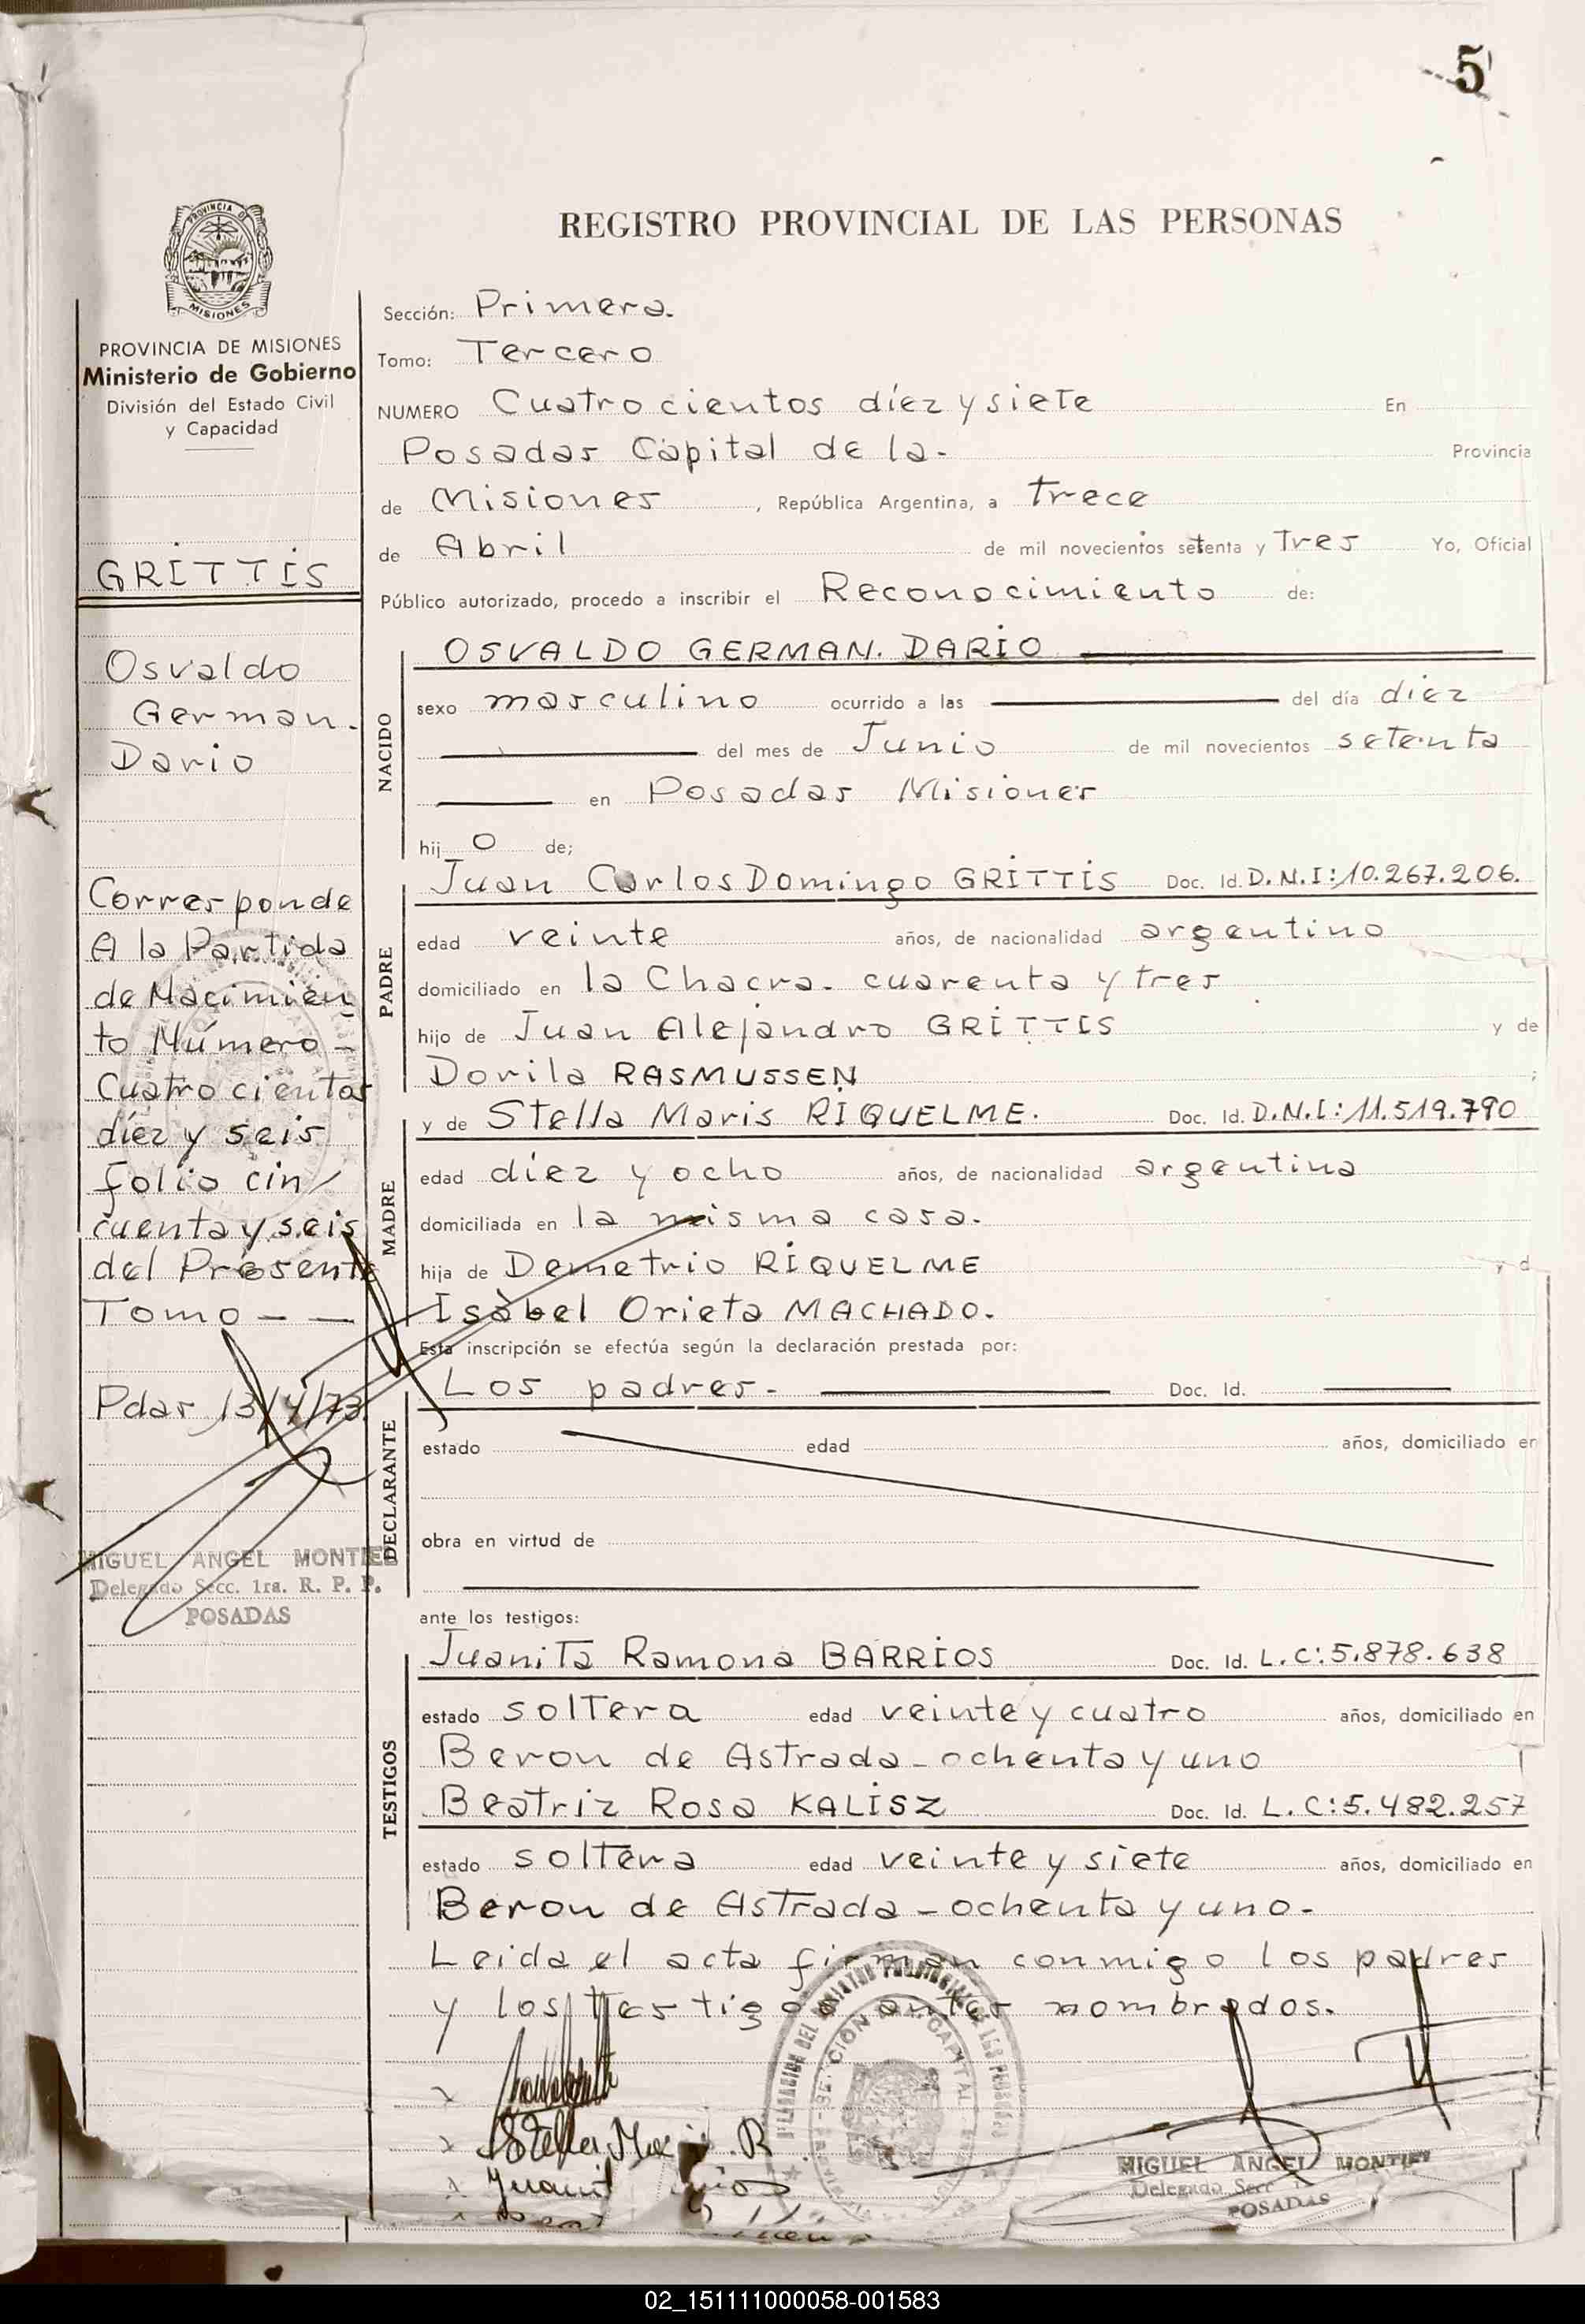 5
PROVINCIA DE
MISIONES
REGISTRO PROVINCIAL DE LAS PERSONAS
PROVINCIA DE MISIONES
Ministerio de Gobierno
División del Estado Civil
y Capacidad
GRITTIS
Osvaldo
German.
Dario
Corresponde
A la Partida
de Nacimien
to Número -
Cuatrocientos
díez y seis
folio cin/
cuenta y seis
del Presente
Tomo - -
Pdas 13/4/73.
MIGUEL ANGEL MONTIEL
Delegado Secc. 1ra. R. P. P.
POSADAS
Sección: Primera.
Tomo: Tercero
NUMERO Cuatrocientos díez y siete En
Posadas Capital de la- Provincia
de Misiones , República Argentina, a trece
de Abril de mil novecientos setenta y Tres Yo, Oficial
Público autorizado, procedo a inscribir el Reconocimiento de:
NACIDO
OSVALDO GERMAN. DARIO
sexo masculino ocurrido a las del día diez
del mes de Junio de mil novecientos setenta
en Posadas Misiones
hij o de;
PADRE
Juan Carlos Domingo GRITTIS Doc. Id. D.N.I:10.267.206.
edad veinte años, de nacionalidad argentino
domiciliado en la Chacra. cuarenta y tres
hijo de Juan Alejandro GRITTIS y de
Dorila RASMUSSEN ;
MADRE
y de Stella Maris RIQUELME. Doc. Id. D.N.I:11.519.790
edad diez y ocho años, de nacionalidad argentina
domiciliada en la misma casa.
hija de Demetrio RIQUELME y d
Isabel Orieta MACHADO.
Esta inscripción se efectúa según la declaración prestada por:
DECLARANTE
Los padres- Doc. Id.
estado edad años, domiciliado en
obra en virtud de
ante los testigos:
TESTIGOS
Juanita Ramona BARRIOS Doc. Id. L.C:5.878.638
estado soltera edad veinte y cuatro años, domiciliado en
Beron de Astrada - ochenta y uno
Beatriz Rosa KALISZ Doc. Id. L.C:5.482.257
estado soltera edad veinte y siete años, domiciliado en
Beron de Astrada - ochenta y uno-
Leida el acta firman conmigo los padres
y los testigos antes nombrados.
Stella Maris R
Juanit
MIGUEL ANGEL MONTIEL
Delegado Secc
POSADAS
02_151111000058-001583